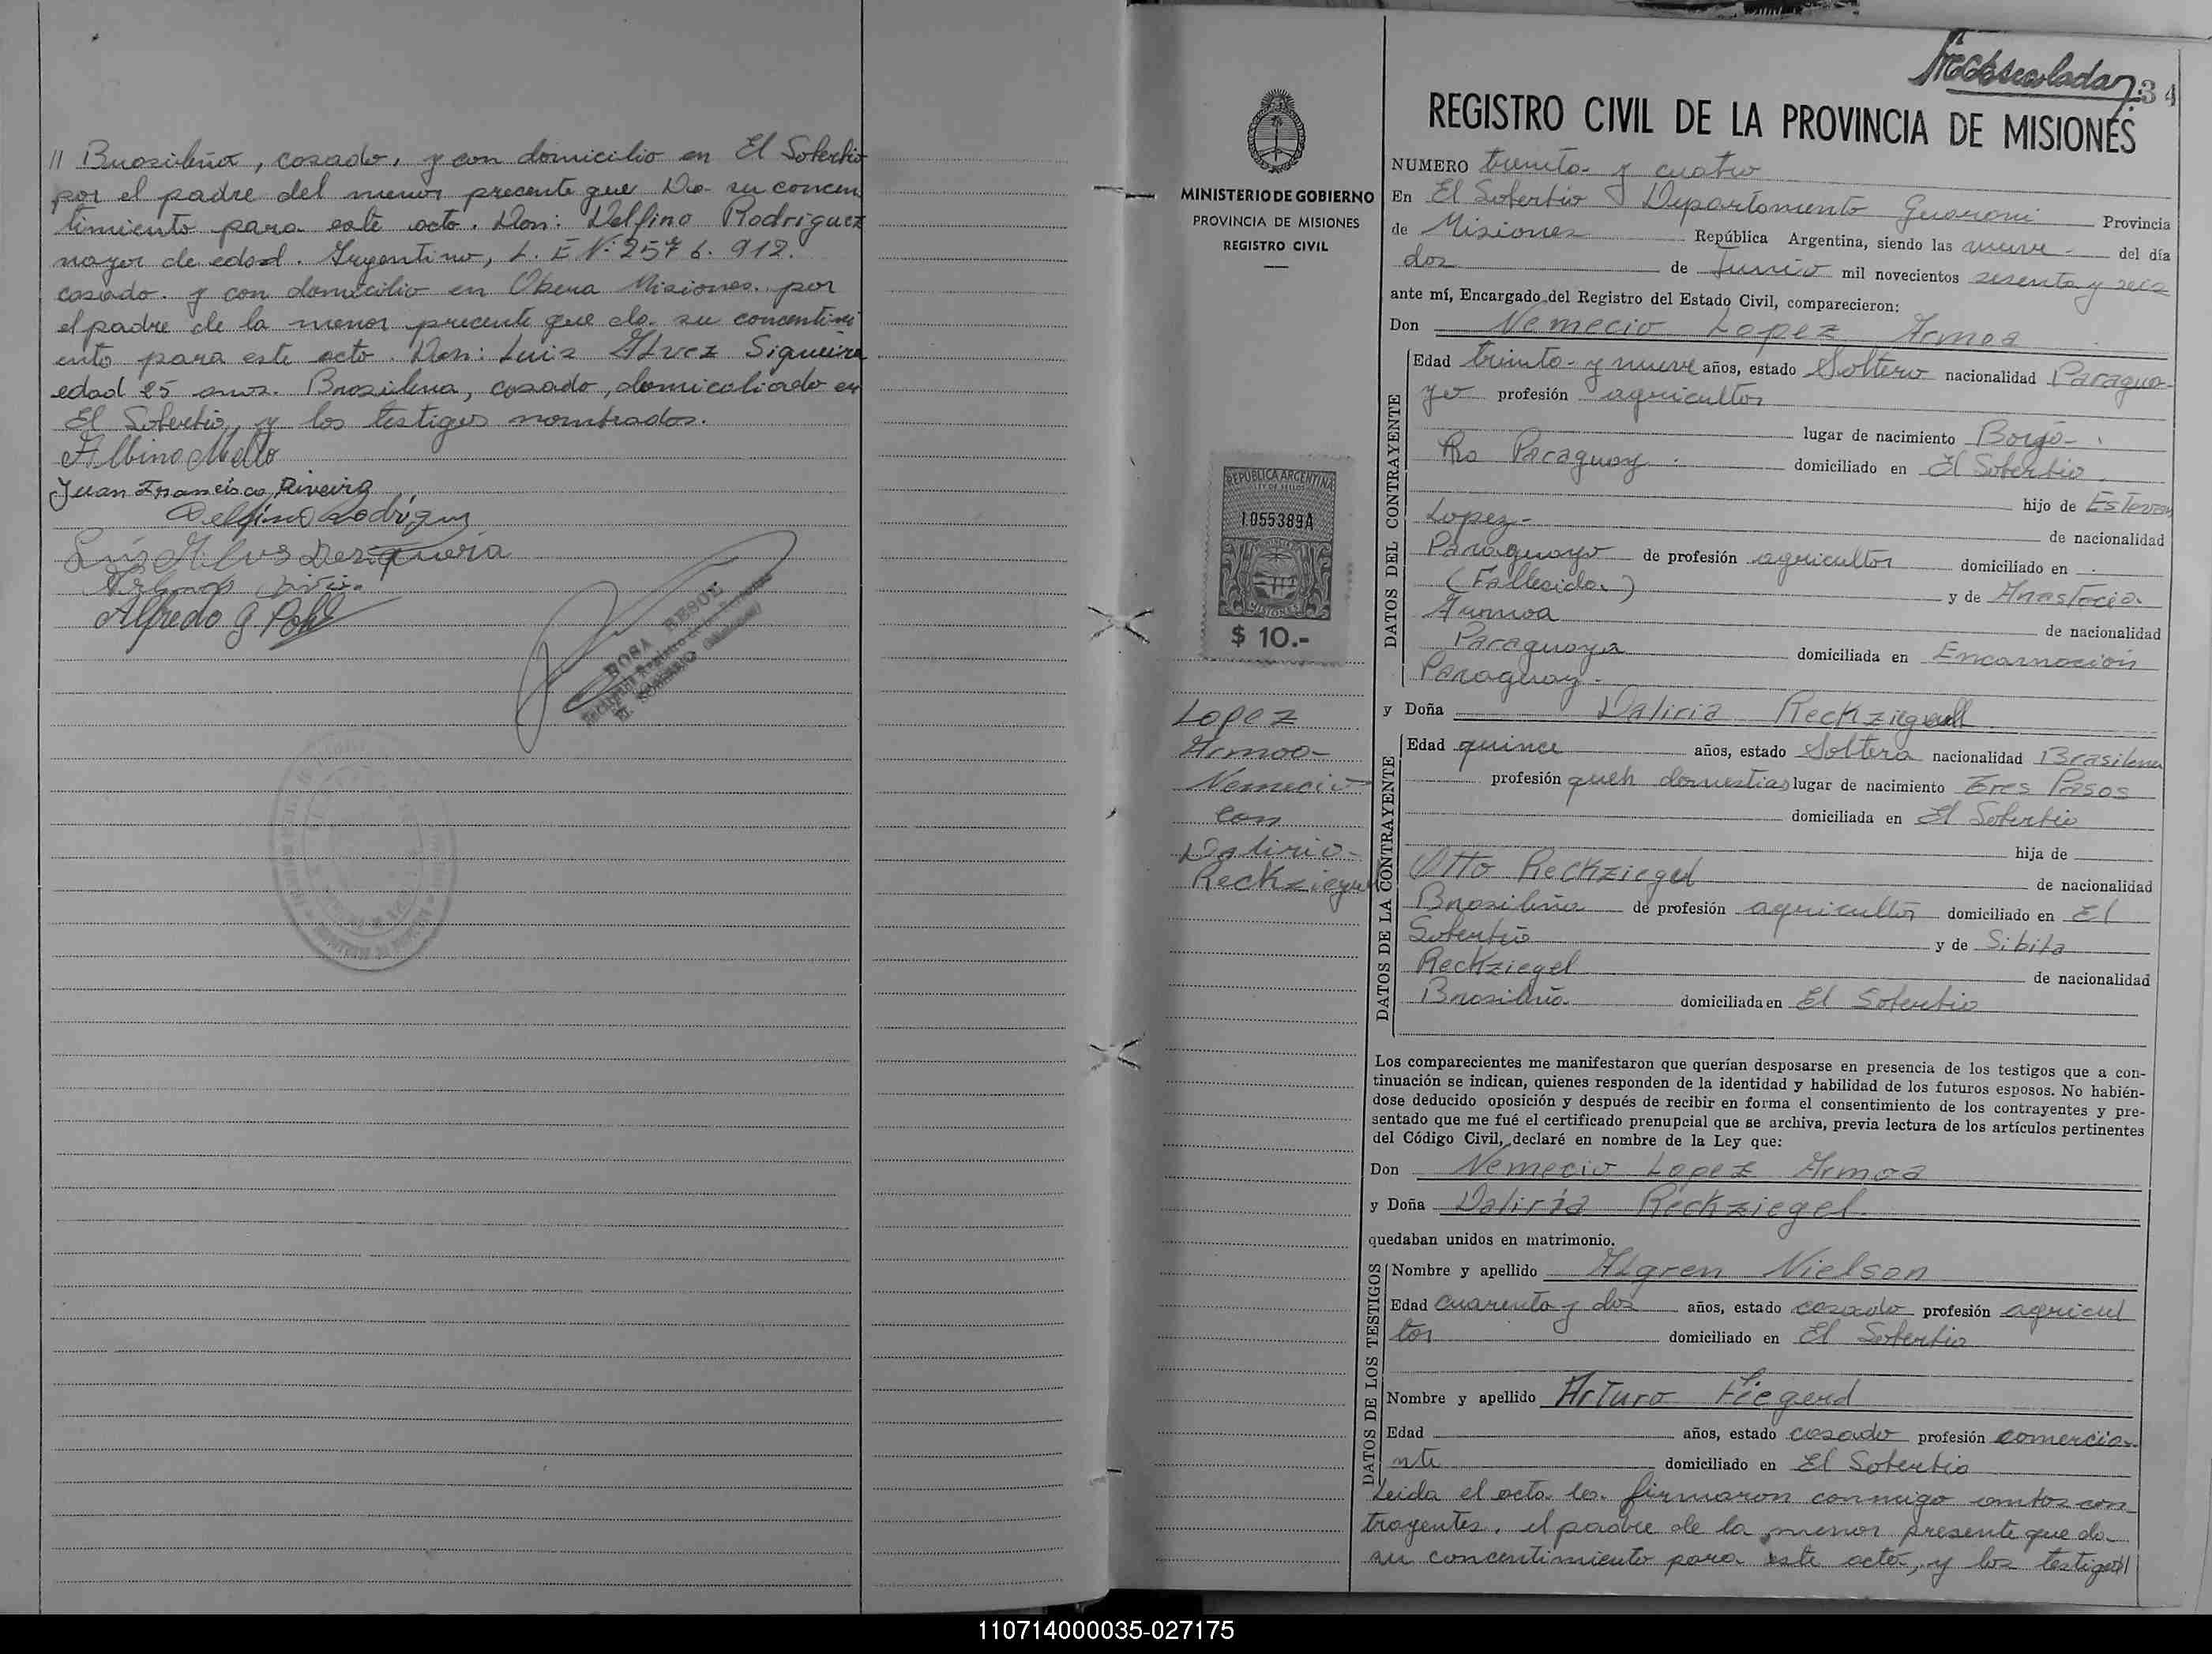 // Brasileña, casado, y con domicilio en El Soberbio
por el padre del menor presente que Da su concen
timiento para este acto. Don: Delfino Rodriguez
mayor de edad. Argentino, L. E Nº 257 6. 912.
casado. y con domicilio en Obera Misiones. por
el padre de la menor precente que da. su concentimi
ento para este acto. Don: Luis Alvez Siqueira
edad 25 anos. Brasilena, casado, domicaliado en
El Soberbio, y los testigos nombrados.
Albino Mello
Juan Francisco Riveira
Delfino Rodriguz
Alfredo G. Pohl
ROSA BESOL
34
REGISTRO CIVIL DE LA PROVINCIA DE MISIONES
MINISTERIO DE GOBIERNO
PROVINCIA DE MISIONES
REGISTRO CIVIL
NUMERO treinta y cuatro
En El Soberbio Departamento Guarani Provincia
de Misiones República Argentina, siendo las nueve del día
dos de Junio mil novecientos sesenta y seis
ante mí, Encargado del Registro del Estado Civil, comparecieron:
Don Nemecio Lopez Armoa
DATOS DEL CONTRAYENTE
Edad treinta y nueve años, estado Soltero nacionalidad Paragua-
yo profesión agricultor
lugar de nacimiento Borgo
Paraguay domiciliado en El Soberbio
hijo de Estevan
Lopez- de nacionalidad
Paraguayo de profesión agricultor domiciliado en
(Fallesido) y de Anastacia
Armoa de nacionalidad
Paraguaya domiciliada en Encarnacion
Paraguay.
y Doña Daliria Reckziegel
DATOS DE LA CONTRAYENTE
Edad quince años, estado Soltera nacionalidad Brasilena
profesión queh domestias lugar de nacimiento Tres Pasos
domiciliada en El Soberbio
hija de
Otto Reckziegel de nacionalidad
Brasileña de profesión agricultor domiciliado en El
Soberbio y de Sibila
Reckziegel de nacionalidad
Brasileña domiciliada en El Soberbio
REPUBLICA ARGENTINA
LEY DE SELLOS
1055389A
MISIONES
$ 10.-
Lopez
Armoa-
Nemecio
con
Daliria-
Reckziegel
Los comparecientes me manifestaron que querían desposarse en presencia de los testigos que a con-
tinuación se indican, quienes responden de la identidad y habilidad de los futuros esposos. No habién-
dose deducido oposición y después de recibir en forma el consentimiento de los contrayentes y pre-
sentado que me fué el certificado prenupcial que se archiva, previa lectura de los artículos pertinentes
del Código Civil, declaré en nombre de la Ley que:
Don Nemecio Lopez Armoa
y Doña Daliria Reckziegel.
quedaban unidos en matrimonio.
DATOS DE LOS TESTIGOS
Nombre y apellido Algren Nielson
Edad cuarenta y dos años, estado casado profesión agricul
tor domiciliado en El Soberbio
Nombre y apellido Arturo Fiegerd
Edad años, estado casado profesión comercia-
nte domiciliado en El Soberbio
Leida el acta la firmaron conmigo ambos con
trayentes, el padre de la menor presente que da
su concentimiento para este acto, y los testigos//
110714000035-027175